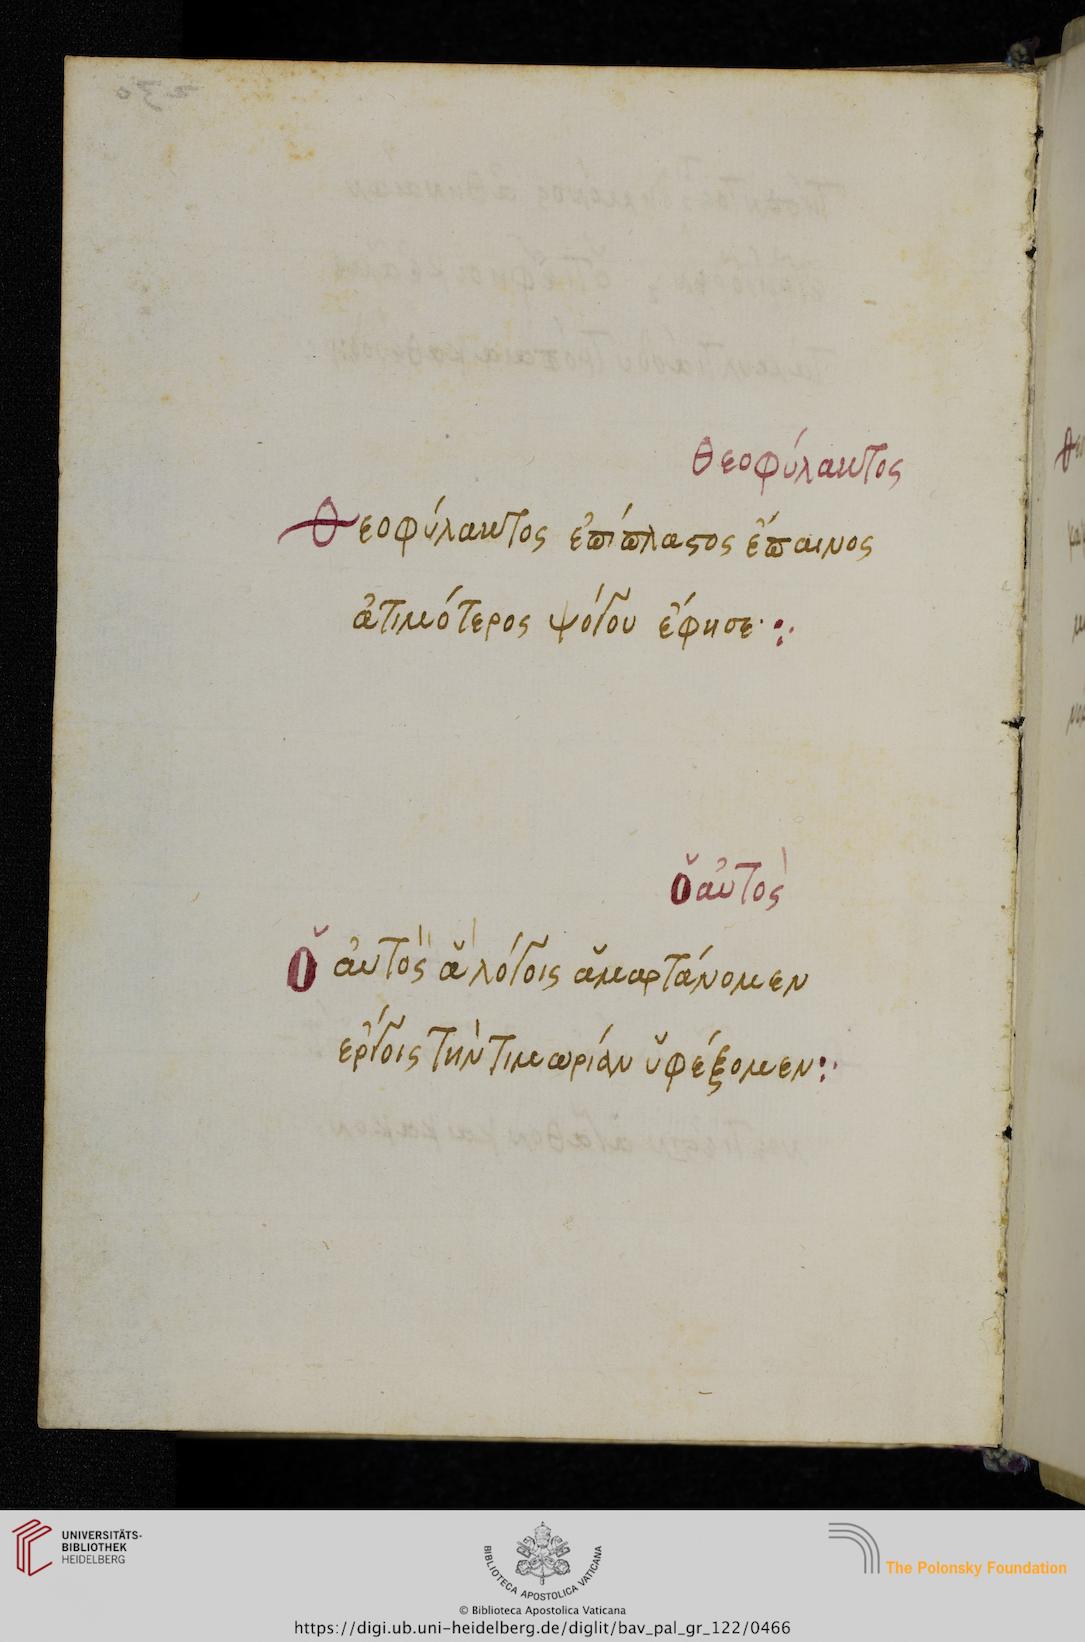 θεοφύλακτος
θεοφύλακτος ἐπίπλαστος ἔπαινος
ἀτιμότερος ψόγου ἔφησε:
ὁ αὐτὸς
ὁ αὐτὸς ἃ λόγοις ἁμαρτάνομεν
ἔργοις τὴν τιμωρίαν ὑφέξομεν:
UNIVERSITÄTS-
BIBLIOTHEK
HEIDELBERG
BIBLIOTECA APOSTOLICA VATICANA
The Polonsky Foundation
© Biblioteca Apostolica Vaticana
https://digi.ub.uni-heidelberg.de/diglit/bav_pal_gr_122/0466